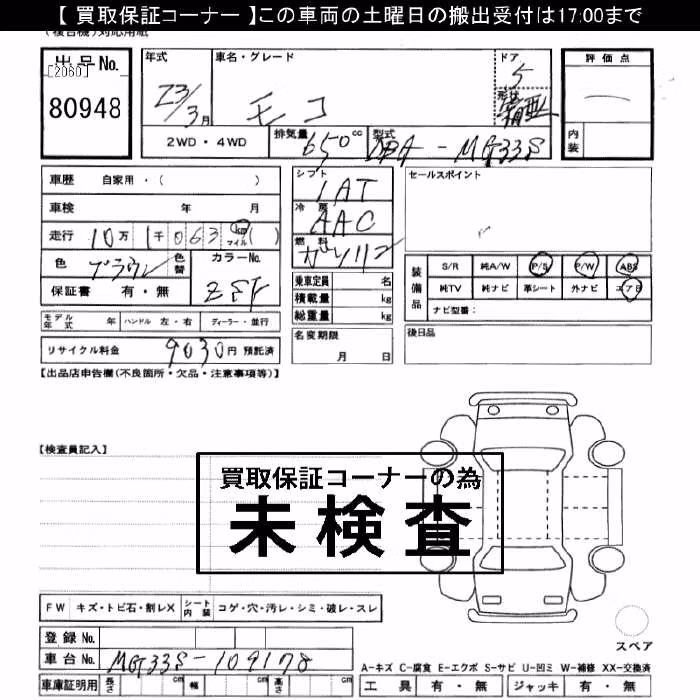 【 買取保証コーナー 】この車両の土曜日の搬出受付は17:00まで
(複合機)対応用紙
出品No.
[2060]
80948
年式
車名・グレード
ドア
5
形状
23/3月
モコ
評価点
内装
2WD・4WD
排気量
650cc
型式
DBA-MG33S
車歴 自家用・( )
車検 年 月
走行 10万1千063 km マイル ( )
色 ブラウン 色替 カラーNo.
保証書 有・無
シフト
1AT
冷房
AAC
燃料
ガソリン
セールスポイント
装備品
S/R 純A/W P/S P/W ABS
純TV 純ナビ 革シート 外ナビ エアB
ナビ型番:
乗車定員 名
積載量 kg
総重量 kg
モデル年式 年 ハンドル 左・右 ディーラー・並行
名変期限
月 日
後日品
リサイクル料金 9030円 預託済
【出品店申告欄(不良箇所・欠品・注意事項等)】
【検査員記入】
買取保証コーナーの為
未検査
FW キズ・トビ石・割レX シート内装 コゲ・穴・汚レ・シミ・破レ・スレ
登録No.
車台No. MG33S-109178
スペア
A-キズ C-腐食 E-エクボ S-サビ U-凹ミ W-補修 XX-交換済
車庫証明用 長さ cm 幅 cm 高さ cm
工具 有・無 ジャッキ 有・無